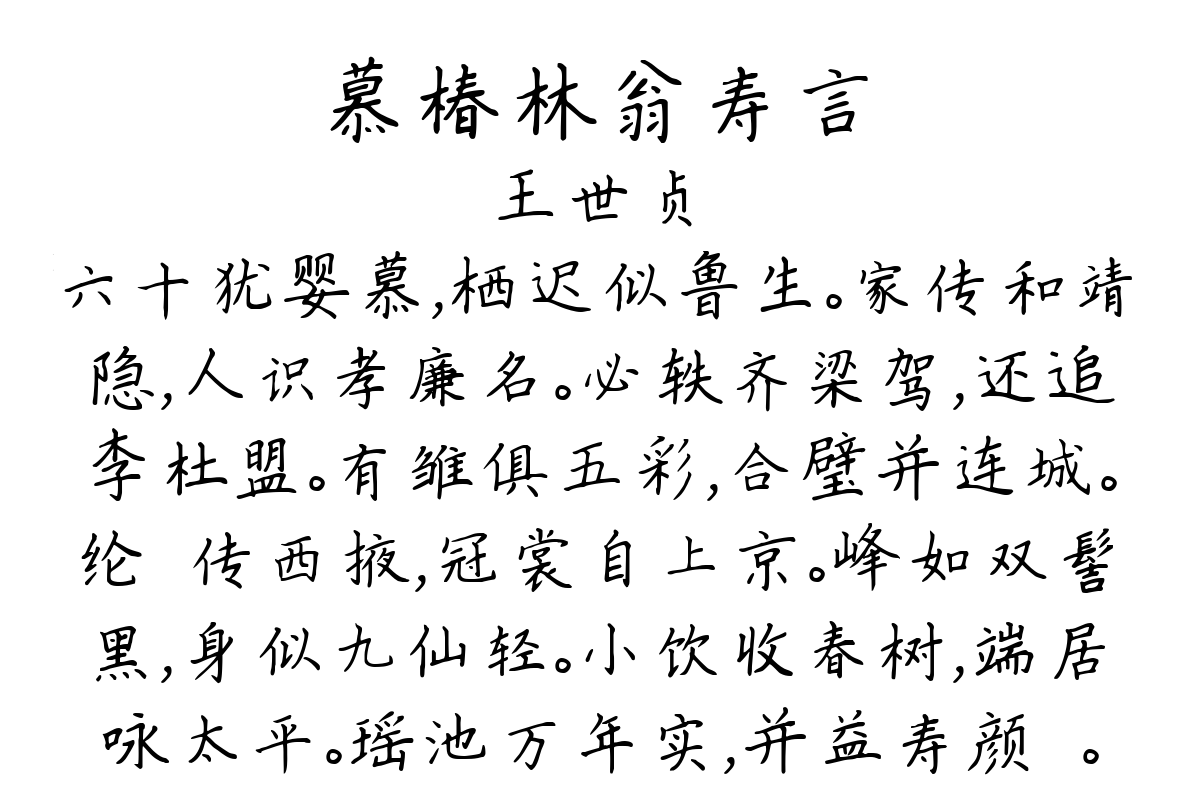 慕椿林翁寿言
王世贞
六十犹婴慕,栖迟似鲁生。家传和靖
隐,人识孝廉名。必轶齐梁驾,还追
李杜盟。有雏俱五彩,合璧并连城。
纶 传西掖,冠裳自上京。峰如双髻
黑,身似九仙轻。小饮收春树,端居
咏太平。瑶池万年实,并益寿颜 。